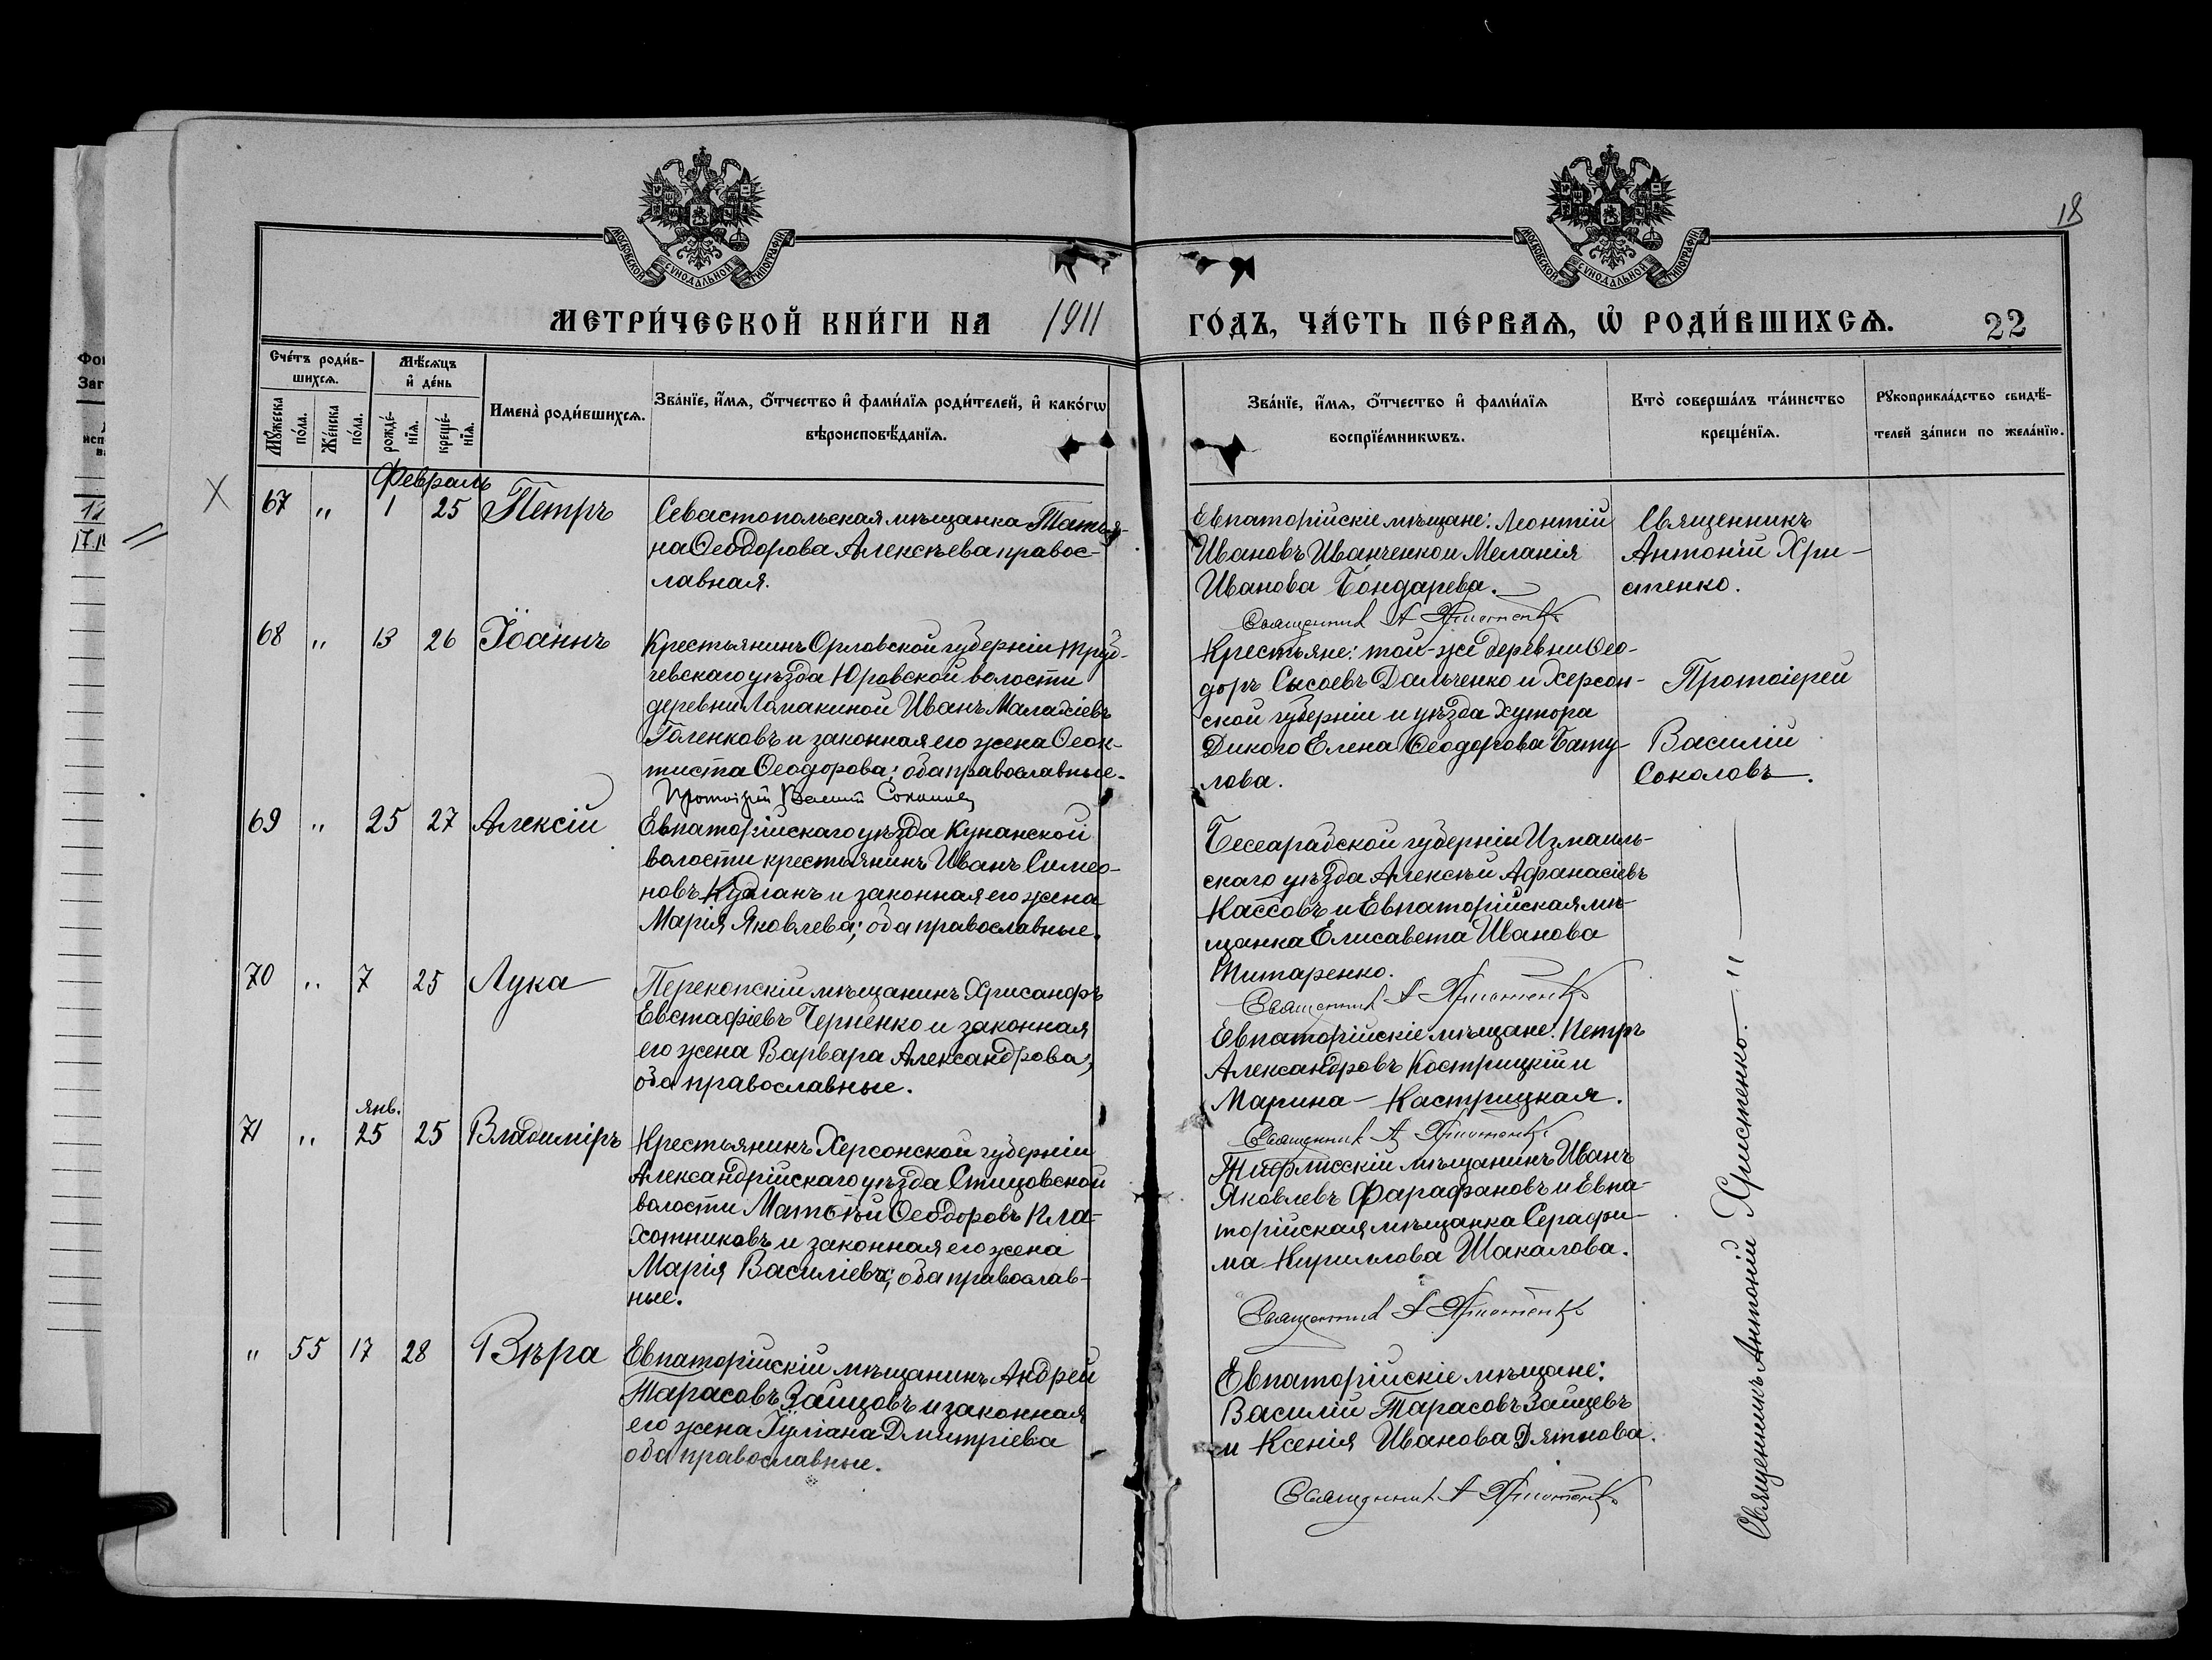 18
МОСКОВСКОЙ СУНОДАЛЬНОЙ ТИПОГРАФІИ
МОСКОВСКОЙ СУНОДАЛЬНОЙ ТИПОГРАФІИ
МЕТРИ́ЧЕСКОЙ КНИ́ГИ НА 1911
ГО́ДЪ, ЧА́СТЬ ПЕ́РВАѦ, Ѡ҆ РОДИ́ВШИХСѦ. 22
Сче́тъ роди́в-
шихсѧ.
Мꙋ́жеска
по́ла.
Же́нска
по́ла.
Мѣ́сѧцъ
и҆ де́нь
рожде́-
нїѧ.
креще́-
нїѧ.
Имена̀ роди́вшихсѧ.
Зва́нїе, и҆́мѧ, ѻ҆́тчество и҆ фами́лїѧ роди́телей, и҆ како́гѡ
вѣроисповѣ́данїѧ.
Зва́нїе, и҆́мѧ, ѻ҆́тчество и҆ фами́лїѧ
воспрїе́мникѡвъ.
Кто̀ соверша́лъ та́инство
креще́нїѧ.
Рꙋкоприкла́дство свидѣ́-
телей за́писи по жела́нїю.
Февраль
67 " 1 25 Петръ
Севастопольская мѣщанка Татья-
на Ѳеодорова Алексѣева правос-
лавная.
Евпаторійскіе мѣщане: Леонтій
Ивановъ Иванченко и Меланія
Иванова Бондарева.
Священник А Христенко
Священникъ
Антоній Хри-
стенко.
68 " 13 26 Іоаннъ
Крестьянинъ Орловской губерніи Труб-
чевскаго уѣзда Юровской волости
деревни Лопакиной Иванъ Малахіевъ
Голенковъ и законная его жена Ѳеок-
тиста Ѳеодорова; оба православные.
Протоіерей Василій Соколовъ
Крестьяне: той-же деревни Ѳео-
доръ Сысоевъ Дальченко и Херсон-
ской губерніи и уѣзда хутора
Дикого Елена Ѳеодорова Бату-
лова.
Протоіерей
Василій
Соколовъ.
69 " 25 27 Алексій
Евпаторійскаго уѣзда Кунанской
волости крестьянинъ Иванъ Симео-
новъ Кудланъ и законная его жена
Марія Яковлева; оба православные.
Бессарабской губерніи Измаиль-
скаго уѣзда Алексѣй Афанасіевъ
Кассовъ и Евпаторійская мѣ-
щанка Елисавета Иванова
Титаренко.
Священник А Христенко
70 " 7 25 Лука
Перекопскій мѣщанинъ Хрисанфъ
Евстафіевъ Черненко и законная
его жена Варвара Александрова;
оба православные.
Евпаторійскіе мѣщане: Петръ
Александровъ Кострицкій и
Марина Кастрицкая.
Священник А Христенко
янв.
71 " 25 25 Владиміръ
Крестьянинъ Херсонской губерніи
Александрійскаго уѣзда Стицовской
волости Матѳѣй Ѳеодоровъ Пла-
хотниковъ и законная его жена
Марія Василіева; оба православ-
ные.
Тифлисскій мѣщанинъ Иванъ
Яковлевъ Фарафановъ и Евпа-
торійская мѣщанка Серафи-
ма Кириллова Шакалова.
Священник А Христенко
" 55 17 28 Вѣра
Евпаторійскій мѣщанинъ Андрей
Тарасовъ Зайцовъ и законная
его жена Іуліана Дмитріева
оба православные.
Евпаторійскіе мѣщане:
Василій Тарасовъ Зайцевъ
и Ксенія Иванова Дятлова.
Священник А Христенко
Священникъ Антоній Христенко — " —